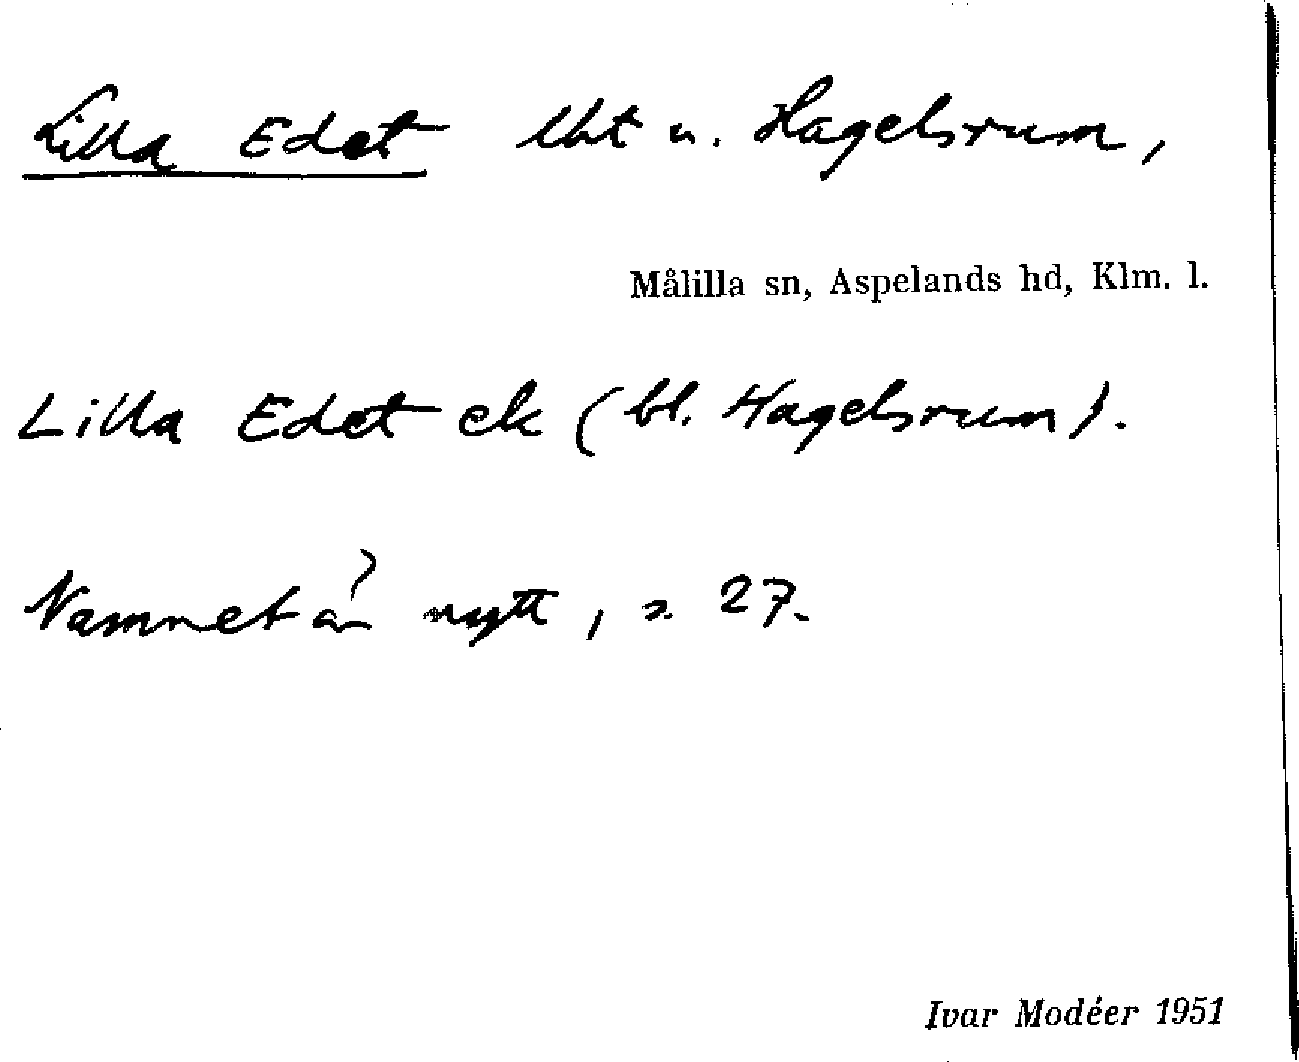 Lilla Edet lht u. Hagelsrum,
Målilla sn, Aspelands hd, Klm. l.
Lilla Edet ek (bl. Hagelsrum).
Namnet är nytt, s. 27.
Ivar Modéer 1951